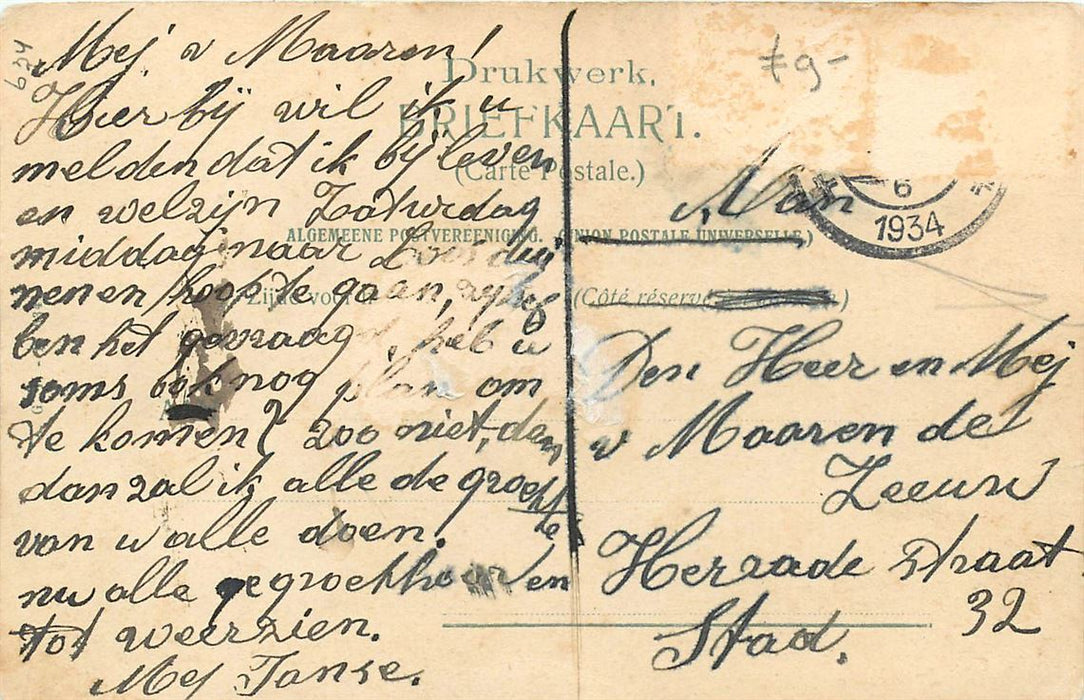 624
Mej v Maaren!
Hier bij wil ik u
melden dat ik bij leven
en welzijn Zaturdag
middag naar
nenen hoop te gaan, zij heb
ben het gevraagd, heb u
soms ook nog plan om
te komen? zoo niet, dan
dan zal ik alle de groeten
van u alle doen.
nu alle gegroet hoor en
tot weerzien.
Mej Janse.
Drukwerk.
BRIEFKAART.
(Carte Postale.)
ALGEMEENE POSTVEREENIGING. (UNION POSTALE UNIVERSELLE.)
Zijde voor
(Côté réservé
79-
6
1934
Aan
Den Heer en Mej
v Maaren de
Leeuw
Herzade straat
32
Stad.